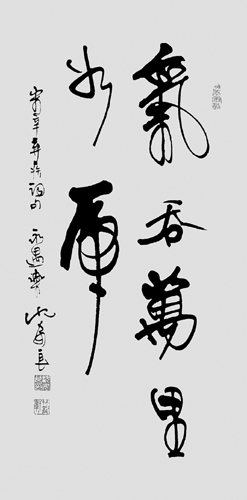 氣吞萬里
如虎
宋辛弃疾词句 永遇乐